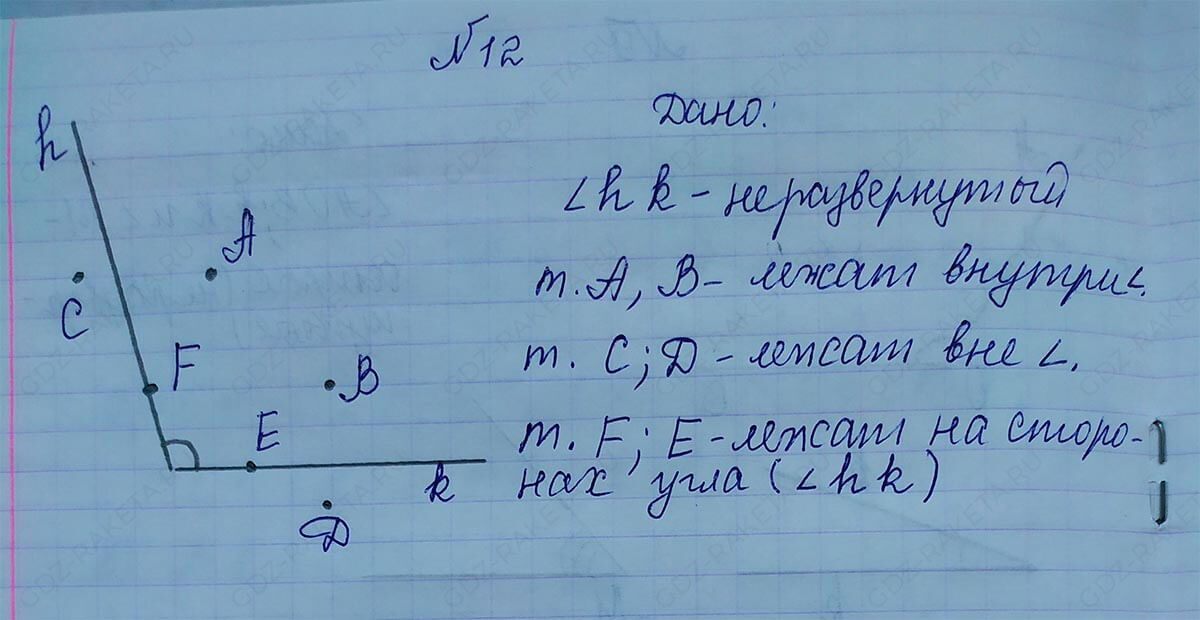 №12
Дано:
∠hk – неразвернутый
т. А, В – лежат внутри ∠.
т. С; Д – лежат вне ∠.
т. F; E – лежат на сторо-
нах угла (∠hk)
h
A
C
F
B
E
k
Д
GDZ-RAKETA.RU